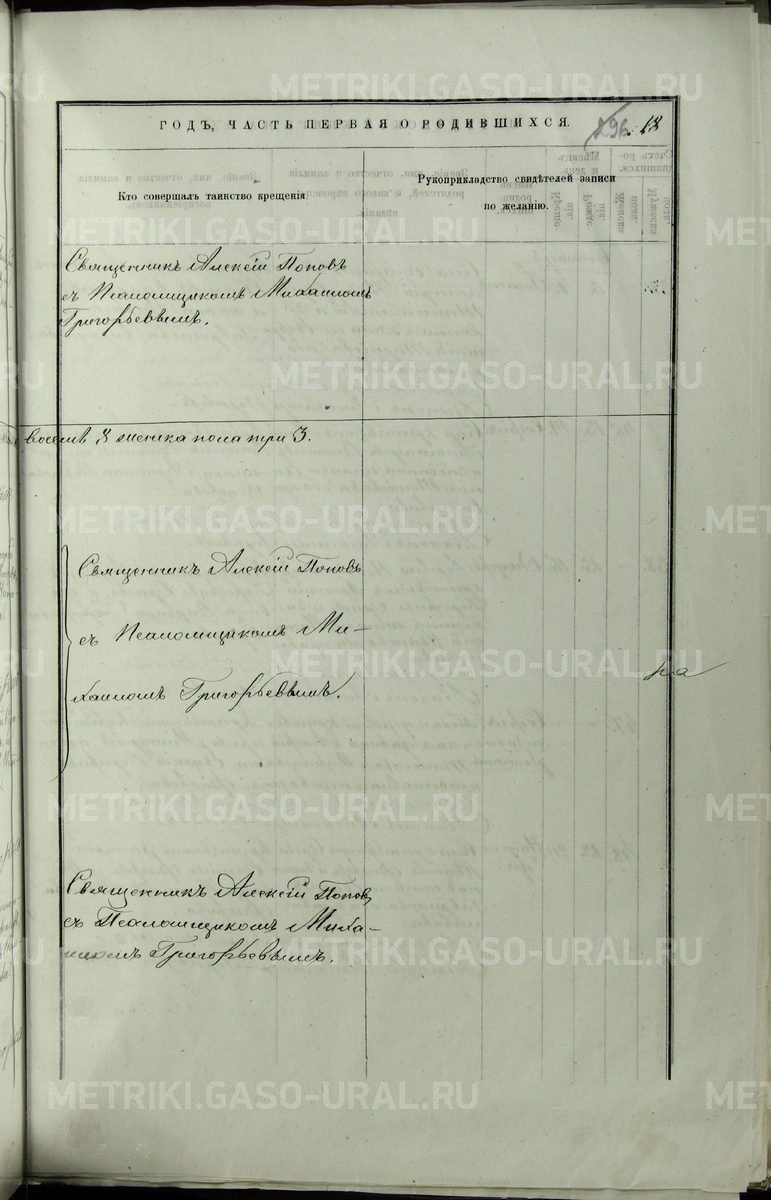 ГОДЪ, ЧАСТЬ ПЕРВАЯ О РОДИВШИХСЯ.
296. 18
Кто совершалъ таинство крещенія.
Рукоприкладство свидѣтелей записи
по желанію.
Священникъ Алексій Поповъ
съ Псаломщикомъ Михаиломъ
Григорьевымъ.
восемь 8 женска пола три 3.
Священникъ Алексій Поповъ
съ Псаломщикомъ Ми-
хаиломъ Григорьевымъ.
Священникъ Алексій Поповъ
съ Псаломщикомъ Миха-
иломъ Григорьевымъ.
METRIKI.GASO-URAL.RU